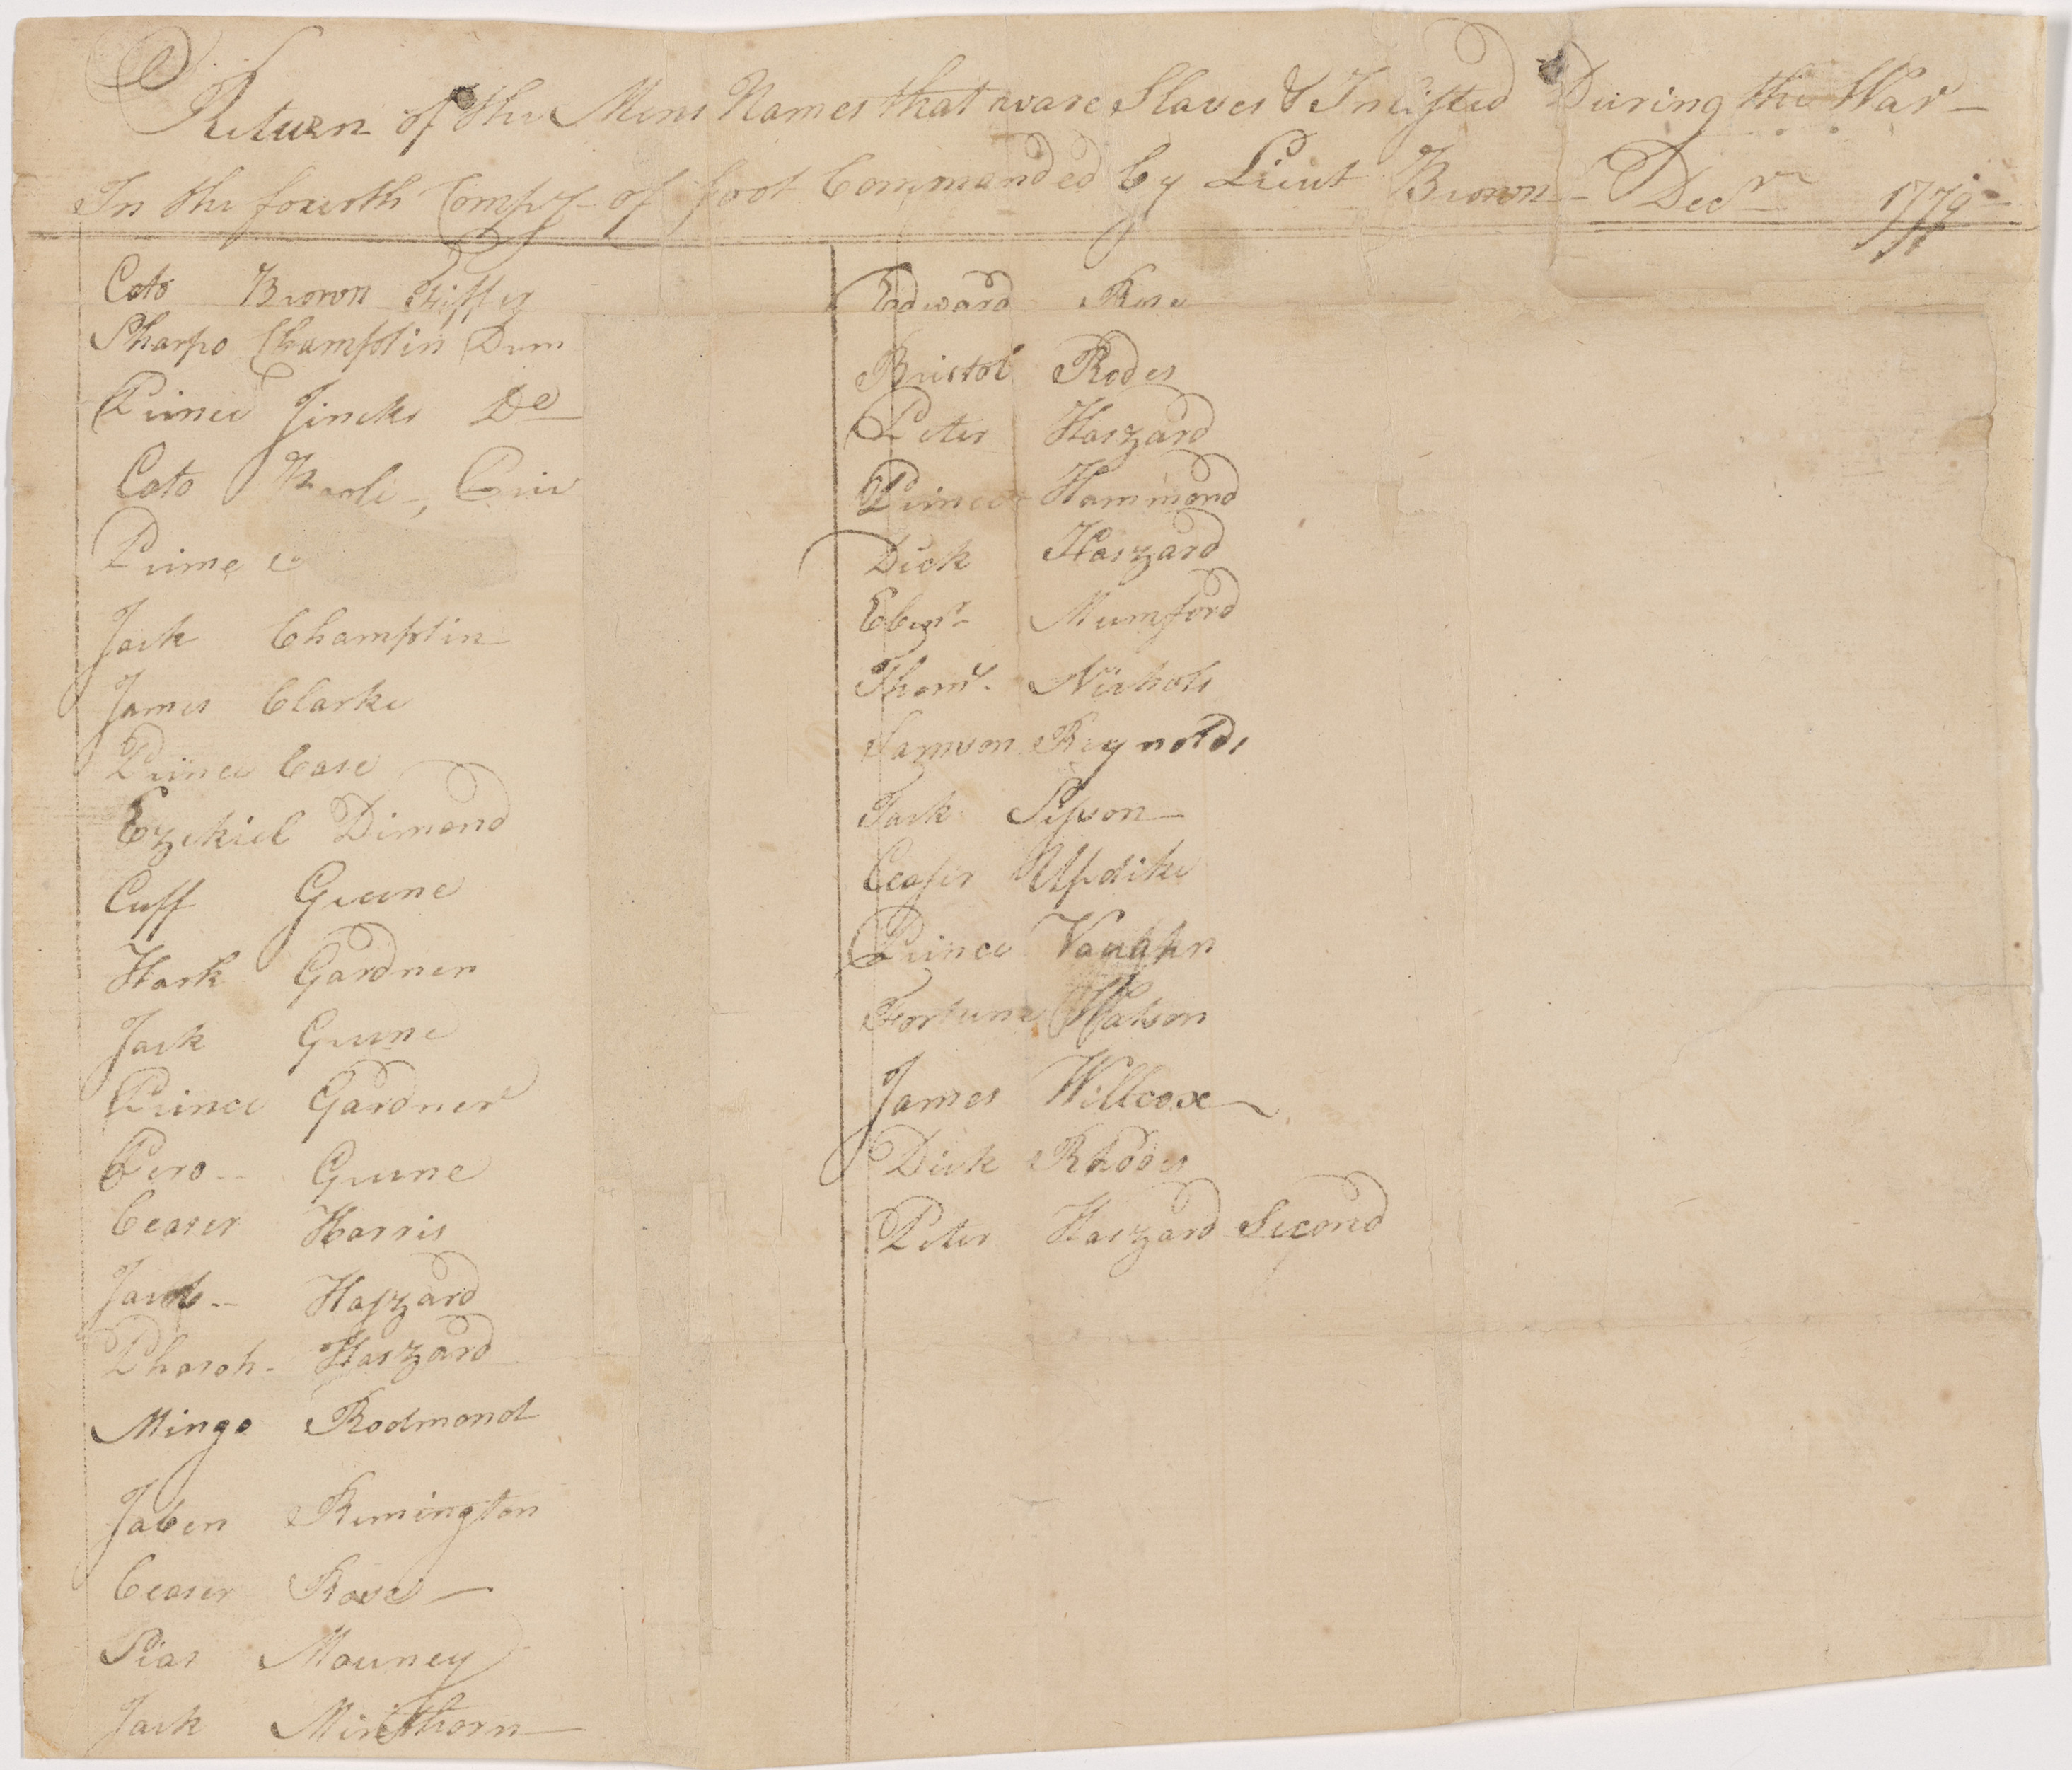 Return of the Mens Names that ware Slaves & Inlisted During the War
In the fourth Compy of foot Commanded by Lieut Brown Decr 1779
Cato Brown Fiffer
Sharpo Champlin Drm
Prince Jincks Do
Cato Priv
Prime
Jack Champlin
James Clarke
Prince Case
Ezekiel Dimond
Cuff Greene
Hark Gardner
Jack Greene
Prince Gardner
Pero Greene
Ceaser Harris
Jacob Haszard
Pharoh Haszard
Mingo Rodmond
Jaben Remington
Ceaser Rose
Pias Mauney
Jack Minthorn
Edward Rose
Bristol Rodes
Peter Haszard
Prince Hammond
Dick Haszard
Ebenr Mumford
Thoms Nichols
Samson Reynolds
Jack Sisson
Ceaser Updike
Prince Vaughn
Fortune Watson
James Willcox
Dick Rhodes
Peter Haszard Second